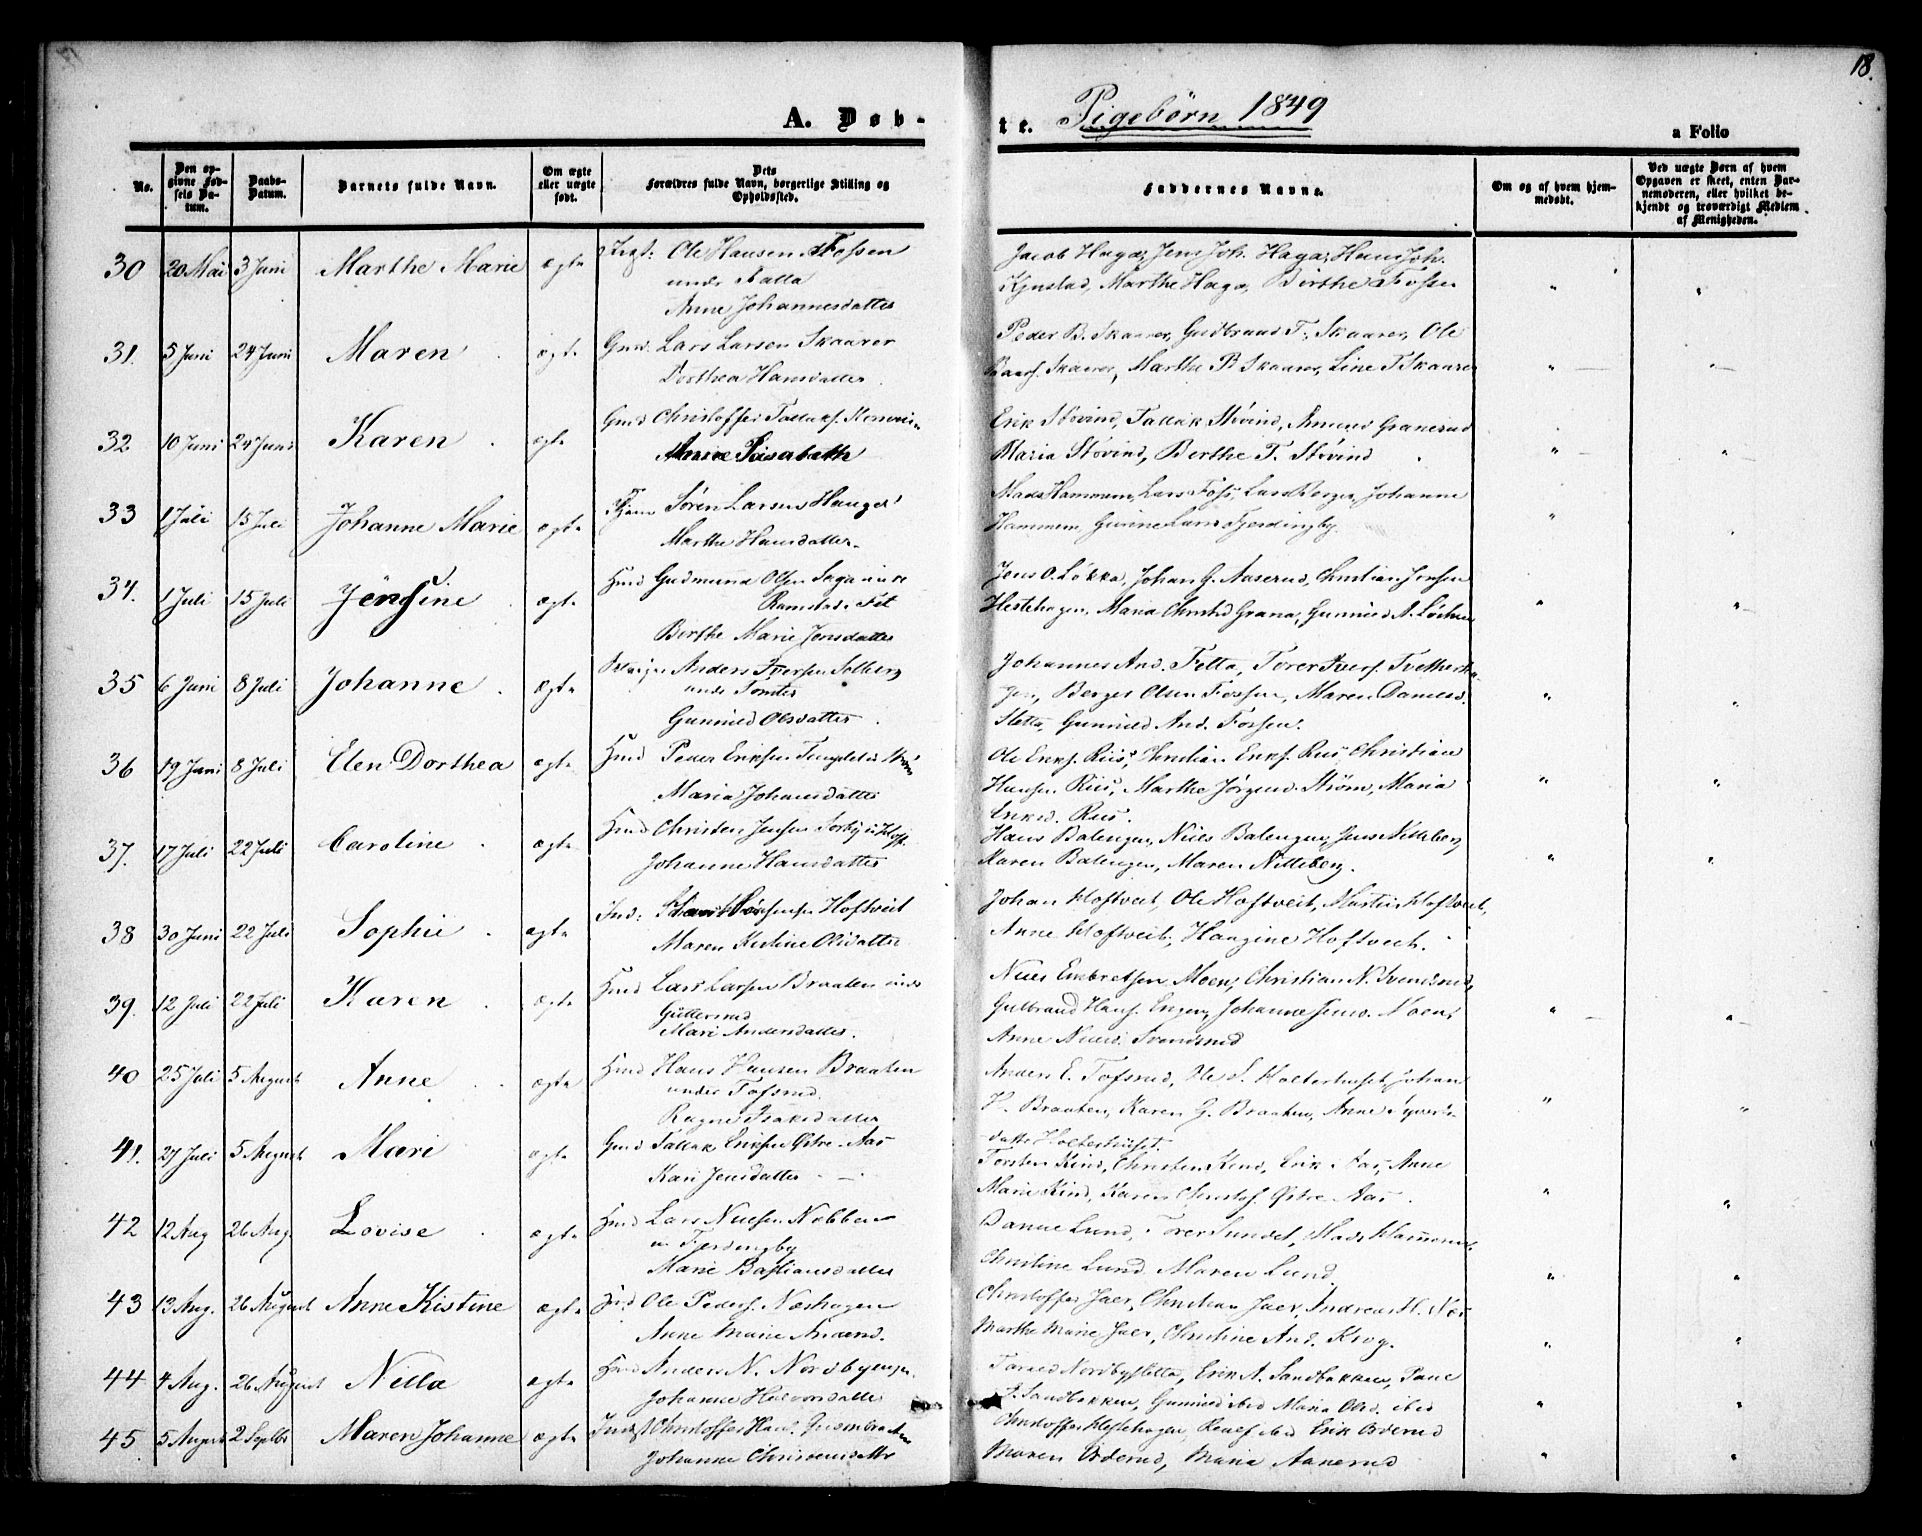 18.
A. Døb-
te. Pigebørn 1849
a Folio
No.
Den op-
givne Fød-
sels Da-
tum.
Daabs-
Datum.
Barnets fulde Navn.
Om ægte
eller uægte
født.
Dets
Forældres fulde Navn, borgerlige Stilling og
Opholdssted.
Faddernes Navne.
Om og af hvem hjem-
medøbt.
Ved uægte Børn af hvem
Opgaven er skeet, enten Bar-
nemoderen, eller hvilket be-
kjendt og troværdigt Medlem
af Menigheden.
30 20 Mai 3 Juni Marthe Marie ægte Ole Hansen Fossen
under Stalla
Anne Johannesdatter
Jacob Haga, Jens Joh. Haga, Hans Joh.
Kjnstad, Marthe Haga, Birthe Fossen
31. 5 Juni 24 Juni Maren ægte Gmd. Lars Larsen Skaarer
Dorthea Hansdatter
Peder B. Skaarer, Gudbrand T. Skaarer, Ole
Skaarer, Marthe B Skaarer, Line T Skaarer
32 10 Juni 24 Juni Karen ægte Gmd Christoffer Tallaks.
Anne Lisabeth
Erik Støvind, Tallak Støvind, Amund Granerud
Maria Støvind, Berthe T. Støvind
33 1 Juli 15 Juli Johanne Marie ægte Søren Larsen Hauger
Marthe Hansdatter
Mads Hammeren, Lars Foss, Lars Berger, Johanne
Hammeren, Lars Fjerdingby.
34. 1 Juli 15 Juli Jensine ægte Hmd Gudmund Olsen Saga under
Ramstad i Fet
Berthe Marie Jensdatter
Jens O. Løkka, Johan G. Aaserud, Christian Jensen
Hestehagen, Maria Christ. Grana, Gunnild A. Løken
35 6 Juni 8 Juli Johanne ægte Anders Iversen Solberg
under Tomter
Gunnild Olsdatter
Johannes And. Fetta, Torer Ivers. Tvetterha-
gen, Berger Olsen Fossen, Maren Danielsd.
Sletta, Gunnild And. Fossen.
36 19 Juni 8 Juli Elen Dorthea ægte Hmd Peder Eriksen
Maria Johansdatter
Ole Eriks. Riis, Christian Eriks. Riis, Christian
Hansen Riis, Marthe Jörgensd. Strøm, Maria
Eriksd. Riis.
37. 17 Juli 22 Juli Caroline ægte Hmd Christen Jensen
Johanne Hansdatter
Hans Balengen, Niels Balengen, Jens Nitteberg
Karen Balengen, Maren Nitteberg.
38 30 Juni 22 Juli Sophie ægte Ind: Hoftveit
Maren Kirstine Olsdatter
Johan Hoftveit, Ole Hoftveit, Martin Hoftveit,
Anne Hoftveit, Haagine Hoftveit.
39. 12 Juli 22 Juli Karen ægte Hmd Lars Larsen Braaten under
Gullersrud
Mari Andersdatter.
Niels Embretsen Moen, Christian N. Svendsrud,
Gulbrand Hans. Enger, Johanne Jensd. Moen,
Anne Nielsd. Svendsrud
40 25 Juli 5 August Anne ægte Hmd Hans Hansen Braaten
under Tofsrud.
Ragne Isaksdatter
Anders E. Tofsrud, Ole S. Holterhuset, Johan
H. Braaten, Karen G. Braaten, Anne Syvers-
datter Holterhuset.
41. 27 Juli 5 August Mari ægte Gmd Tallak Eriksen Østre Aas
Kari Jensdatter
Torsten Kind, Christen Kind, Erik Aas, Anne
Marie Kind, Karen Christof. Østre Aas.
42 12 Aug 26 Aug. Lovise ægte Hmd Lars Nielsen Nebben
u. Fjerdingby
Marie Bastiansdatter
Lund, Torer Sundet, Mads Hammeren
Christine Lund, Maren Lund.
43 13 Aug. 26 August Anne Kistine ægte Ind Ole Peders. Næshagen
Anne Marie Andersd.
Christoffer Jaer, Christian Jaer, Andreas H. Næs
Marthe Marie Jaer, Christine And. Krog.
44 4 Aug. 26 August Nilla ægte Hmd Anders N. Nordbyengen.
Johanne Halvorsdatter
Nordbysletta, Erik A. Sandbakken,
Sandbakken, Gunnild ibid Maria Olsd. ibid
45 5 August 2 Septbr Maren Johanne ægte Indst Christoffer Hans.
Johanne Christensdatter
Christoffer Hestehagen, ibid Erik Orderud
Maren Orderud, Maria Aanerud